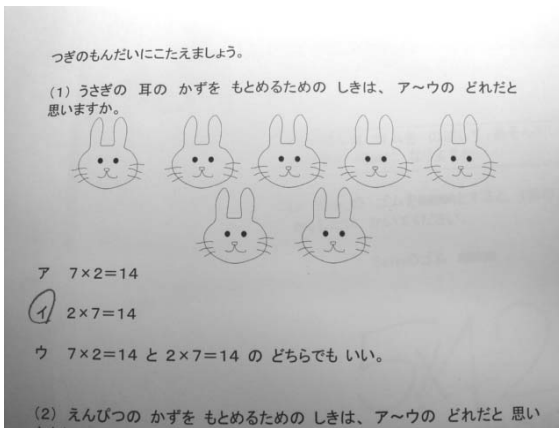 つぎのもんだいにこたえましょう。
(1) うさぎの 耳の かずを もとめるための しきは、 ア～ウの どれだと
思いますか。
ア 7×2=14
イ 2×7=14
ウ 7×2=14 と 2×7=14 の どちらでも いい。
(2) えんぴつの かずを もとめるための しきは、ア～ウの どれだと 思い